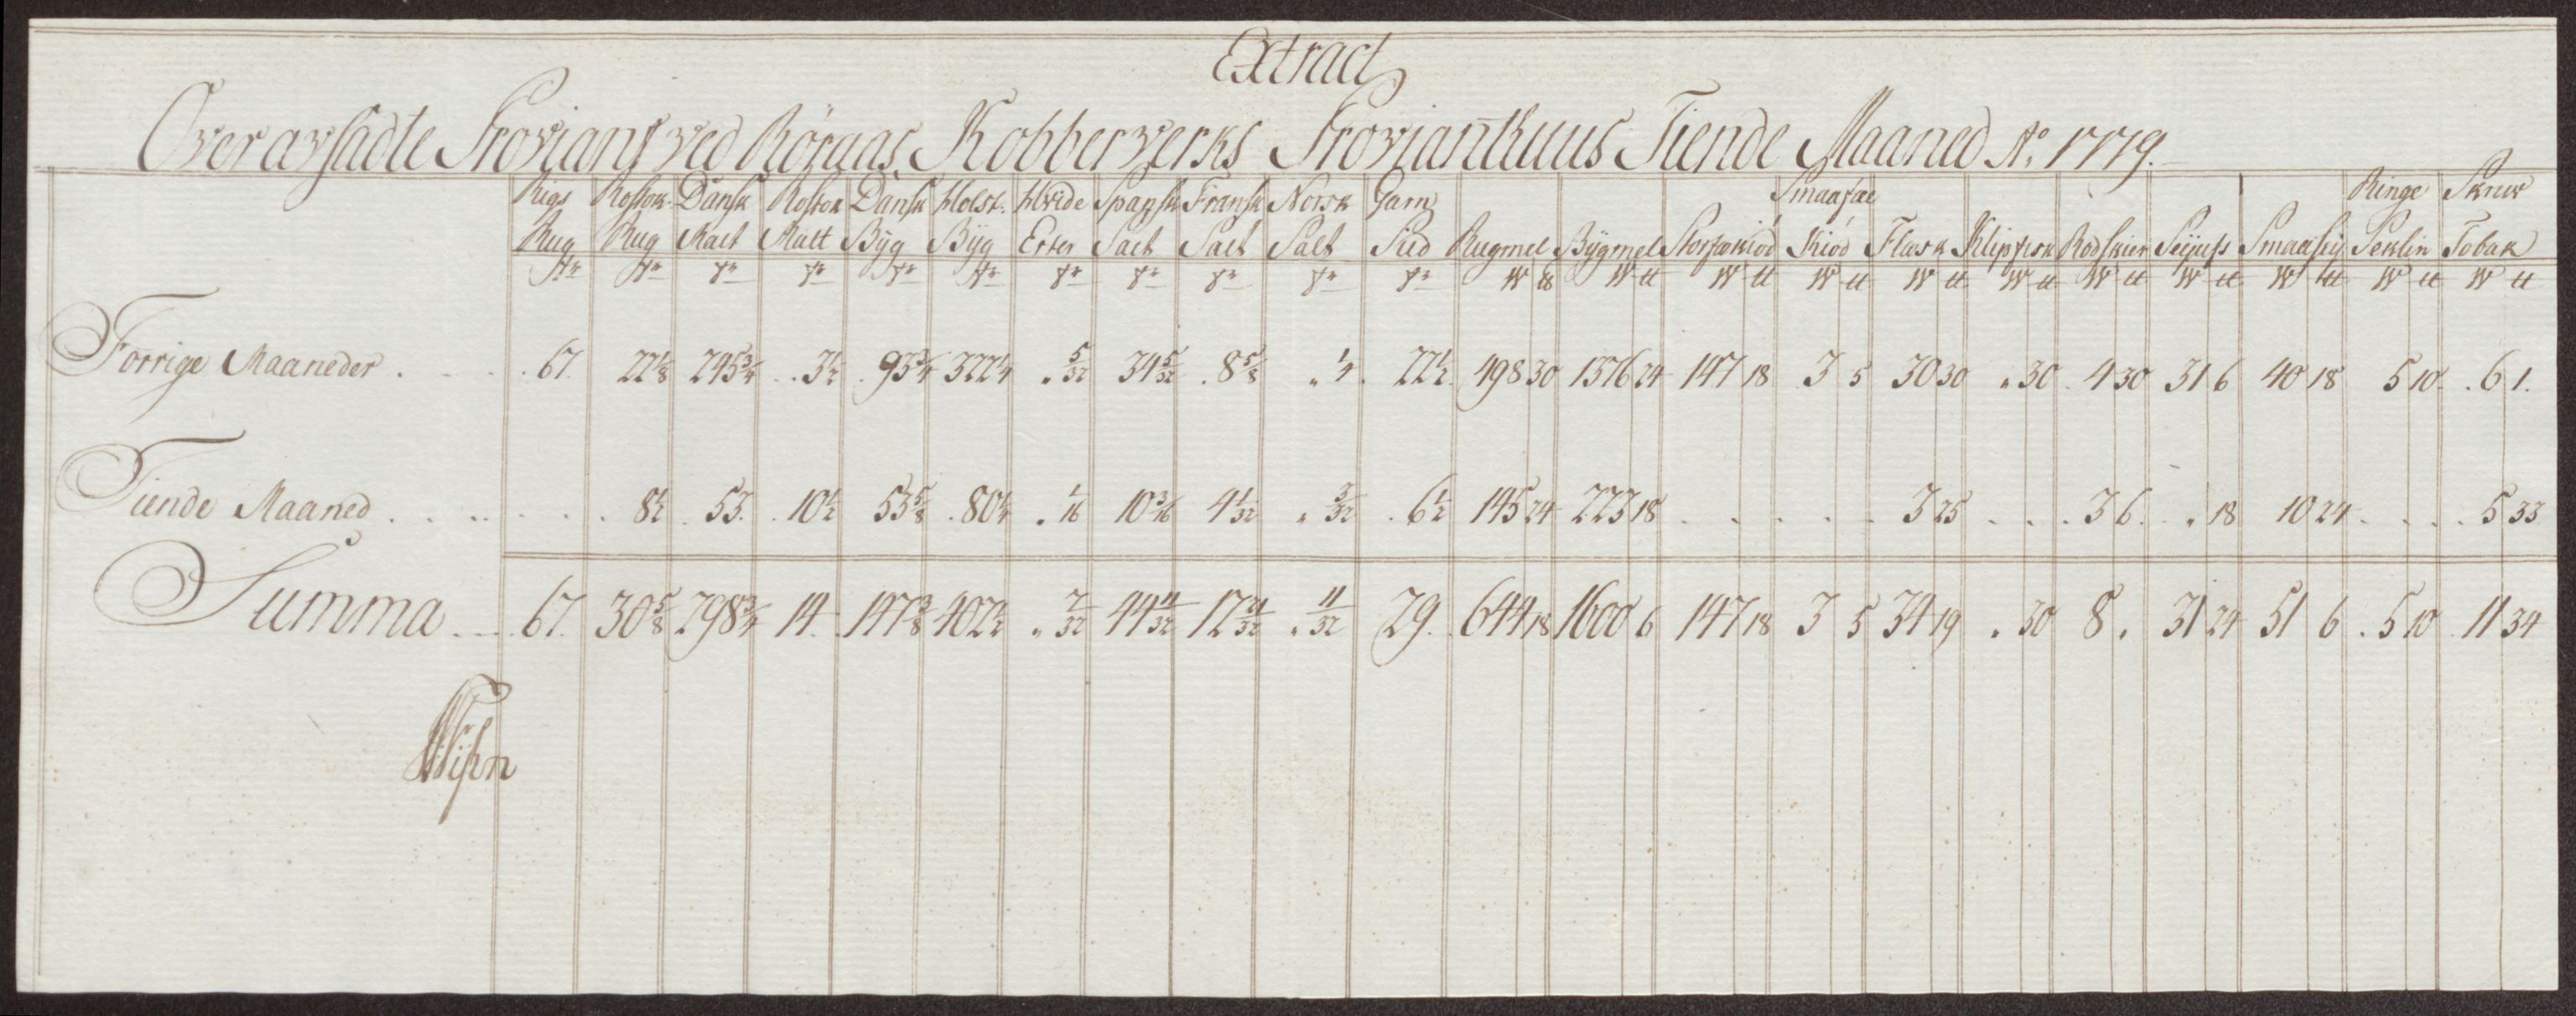 Extract
Over avsadte Proviant ved Röraas Kobberverks Provianthuus Tiende Maaned Ao 1779.
Smaafae Ringe Skruv
Rigs Rostok. Dansk Rostok Dansk Holst. Hvide Spansk Fransk Norsk Gam
Rug Rug Malt Malt Byg Byg Erter Salt Salt Salt Sild Rugmel Bÿgmel Storfækiöd Kiöd Flæsk Klipfisk Rodskier Seÿufs Smaaseÿ Seklin Tobak
Tr Tr Tr Tr Tr Tr Tr Tr Tr Tr Tr W tt W tt W tt W tt W tt W tt W tt W tt W tt W tt W tt
Forrige Maaneder . . . . 67. 22 1/8 245 3/4 . . 3 1/2 . 93 3/4 322 1/4 „ 5/32 34 5/32 . 8 5/8 „ 1/4 . 22 1/2 . 498 30 1376 24 147 18 3 5 30 30 „ 30 . 4 30 31 6 40 18 5 10 . 6 1.
Tiende Maaned . . . . . . . 8 1/2 . 53. . 10 1/2 53 5/8 . 80 1/4 „ 1/16 10 3/16 4 1/32 „ 3/32 . 6 1/2 145 24 223 18 . . . . . 3 25 . . . . 3 6. . „ 18 10 24 . . . . 5 33
Summa . . . 67. 30 5/8 298 3/4 14. 147 3/8 402 1/2 „ 7/32 44 11/32 12 21/32 „ 11/32 29. 644 18 1600 6 147 18 3 5 34 19 „ 30 8 „ 31 24 51 6 . 5 10 11 34